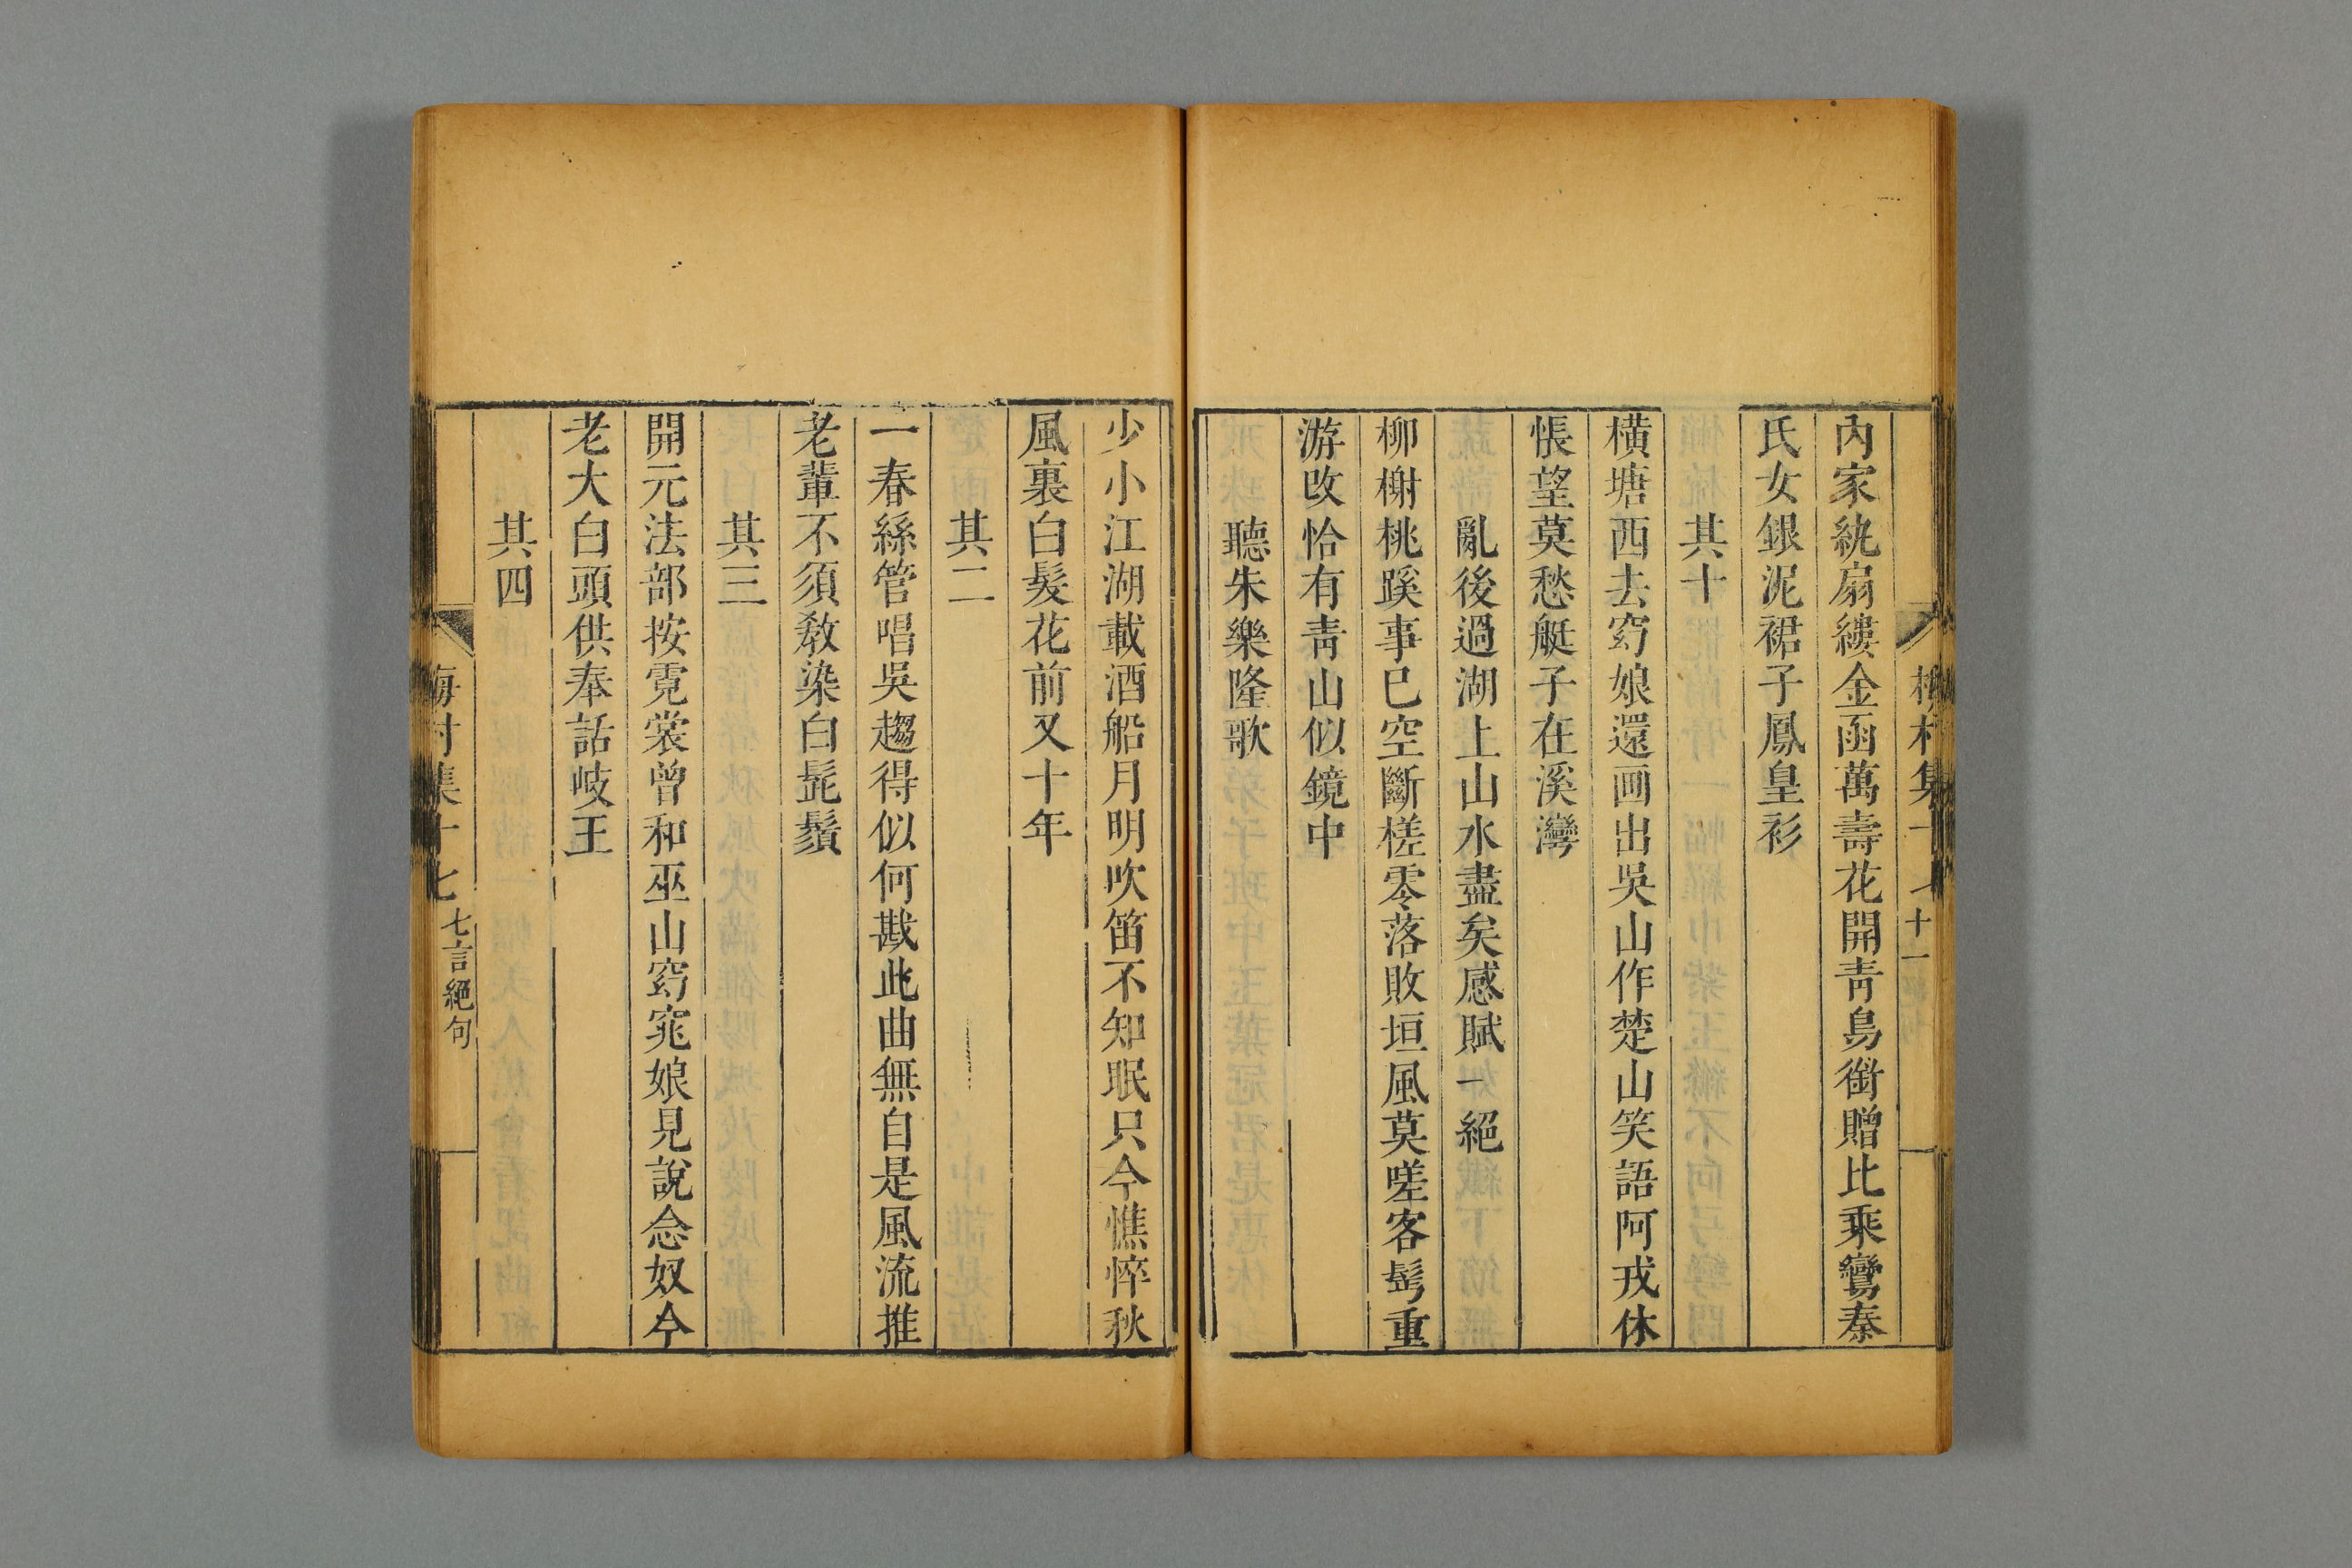 內家紈扇縷金函萬壽花開青鳥銜贈比乘鸞秦
氏女銀泥裙子鳳皇衫
其十
橫塘西去窈娘還画出吳山作楚山笑語阿戎休
悵望莫愁艇子在溪灣
亂後過湖上山水盡矣感賦一絕
柳榭桃蹊事已空斷槎零落敗垣風莫嗟客鬂重
游改恰有青山似鏡中
聽朱樂隆歌
少小江湖載酒船月明吹笛不知眠只今憔悴秋
風裏白髮花前又十年
其二
一春絲管唱吳趨得似何戡此曲無自是風流推
老輩不須教染白髭鬚
其三
開元法部按霓裳曾和巫山窈窕娘見說念奴今
老大白頭供奉話岐王
其四
梅村集十七 七言絕句